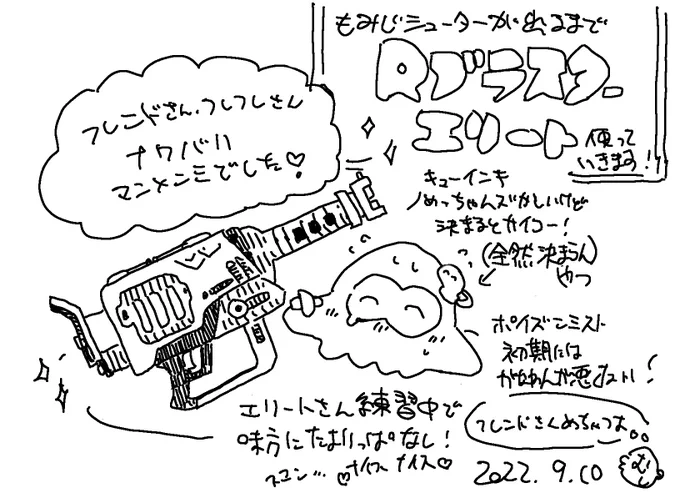 もみじシューターが出るまで
Rブラスター
エリート使って
いきます!!
フレンドさん、フレフレさん
ナワバリ
マンメンミでした♡
キューインキ
めっちゃムズかしいけど
決まるとカイコー!
(全然決まらん)
やつ
ポイズンミスト
初期には
がめんが悪
エリートさん練習中で
味方にたよりっぱなし!
ズコン… ♡ナイス ナイス♡
フレンドさんめちゃつよ。。
2022.9.10
む